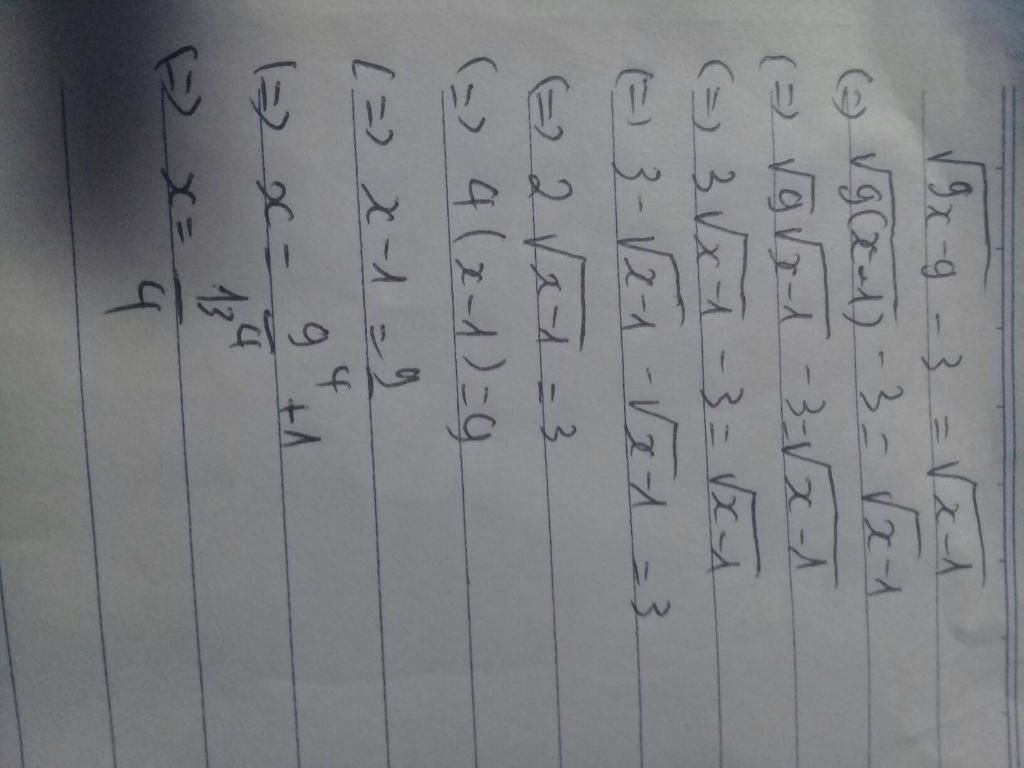 √9x-9 - 3 = √x-1
(=) √9(x-1) - 3 = √x-1
(=) √9 √x-1 - 3 = √x-1
(=) 3√x-1 - 3 = √x-1
(=) 3-√x-1 - √x-1 = 3
(=) 2√x-1 = 3
(=) 4(x-1) = 9
(=) x-1 = 9/4
(=) x = 9/4 + 1
(=) x = 13/4